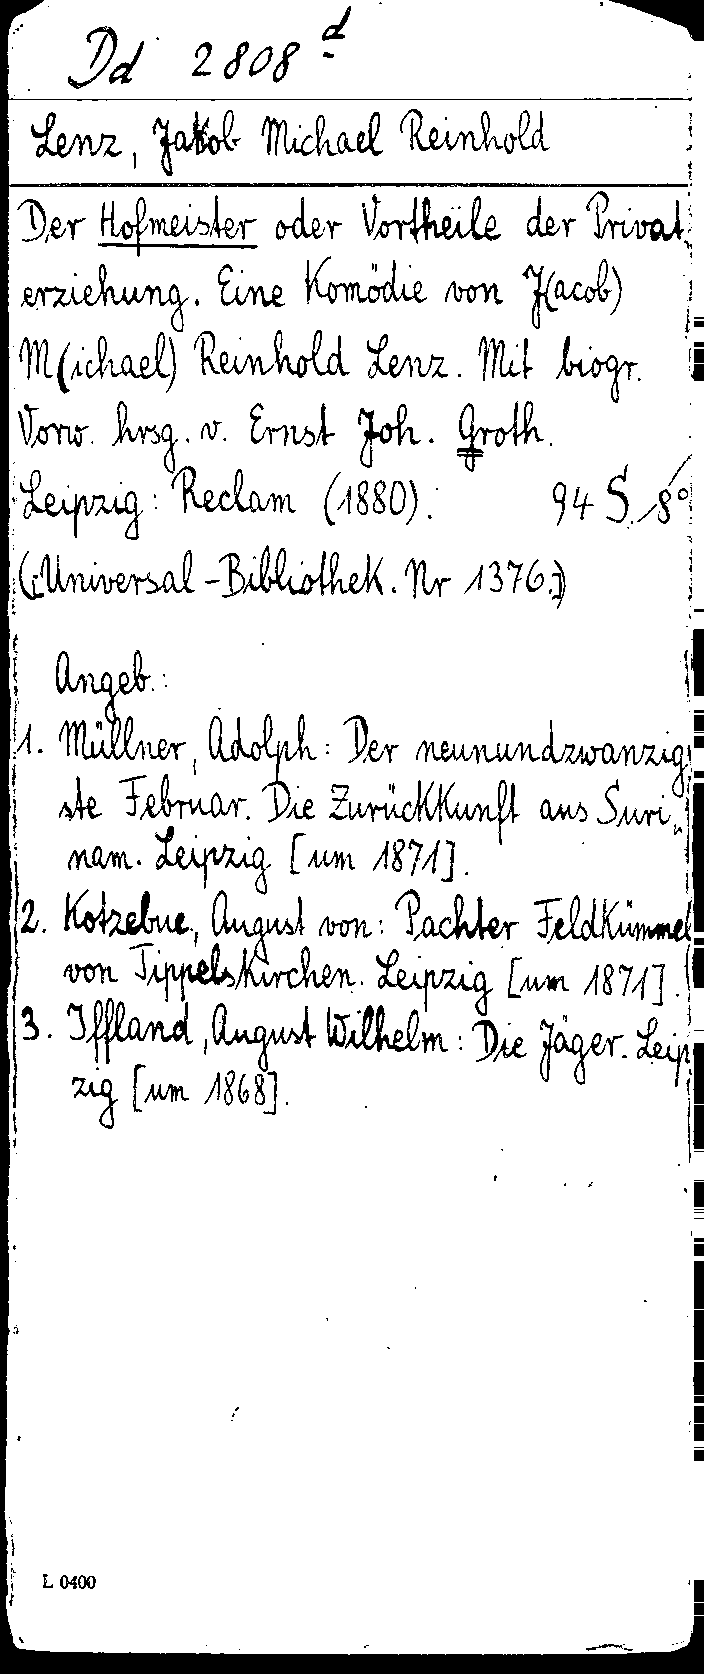 Dd 2808 d
Lenz, Jakob Michael Reinhold
Der Hofmeister oder Vortheile der Privat-
erziehung. Eine Komödie von J(acob)
M(ichael) Reinhold Lenz. Mit biogr.
Vorw. hrsg. v. Ernst Joh. Groth.
Leipzig: Reclam (1880). 94 S. 8°
(:Universal-Bibliothek. Nr 1376.:)
Angeb.:
1. Müllner, Adolph: Der neunundzwanzig
ste Februar. Die Zurückkunft aus Suri-
nam. Leipzig [um 1871].
2. Kotzebue, August von: Pachter Feldkümmel
von Tippelskirchen. Leipzig [um 1871].
3. Iffland, August Wilhelm: Die Jäger. Leip
zig [um 1868].
L 0400